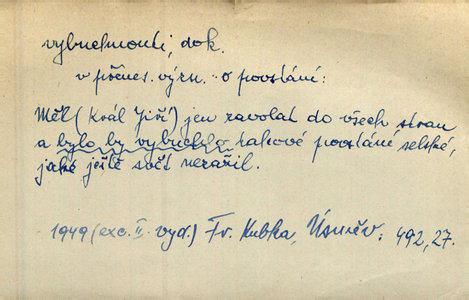 vybuchnouti, dok.
v přenes. význ. o povstání:
Měl (král Jiří) jen zavolat do všech stran
a bylo by vybuchlo takové povstání selské,
jaké ještě svět nezažil.
1949 (exc. II. vyd.) Fr. Kubka, Úsměv. 492, 27.